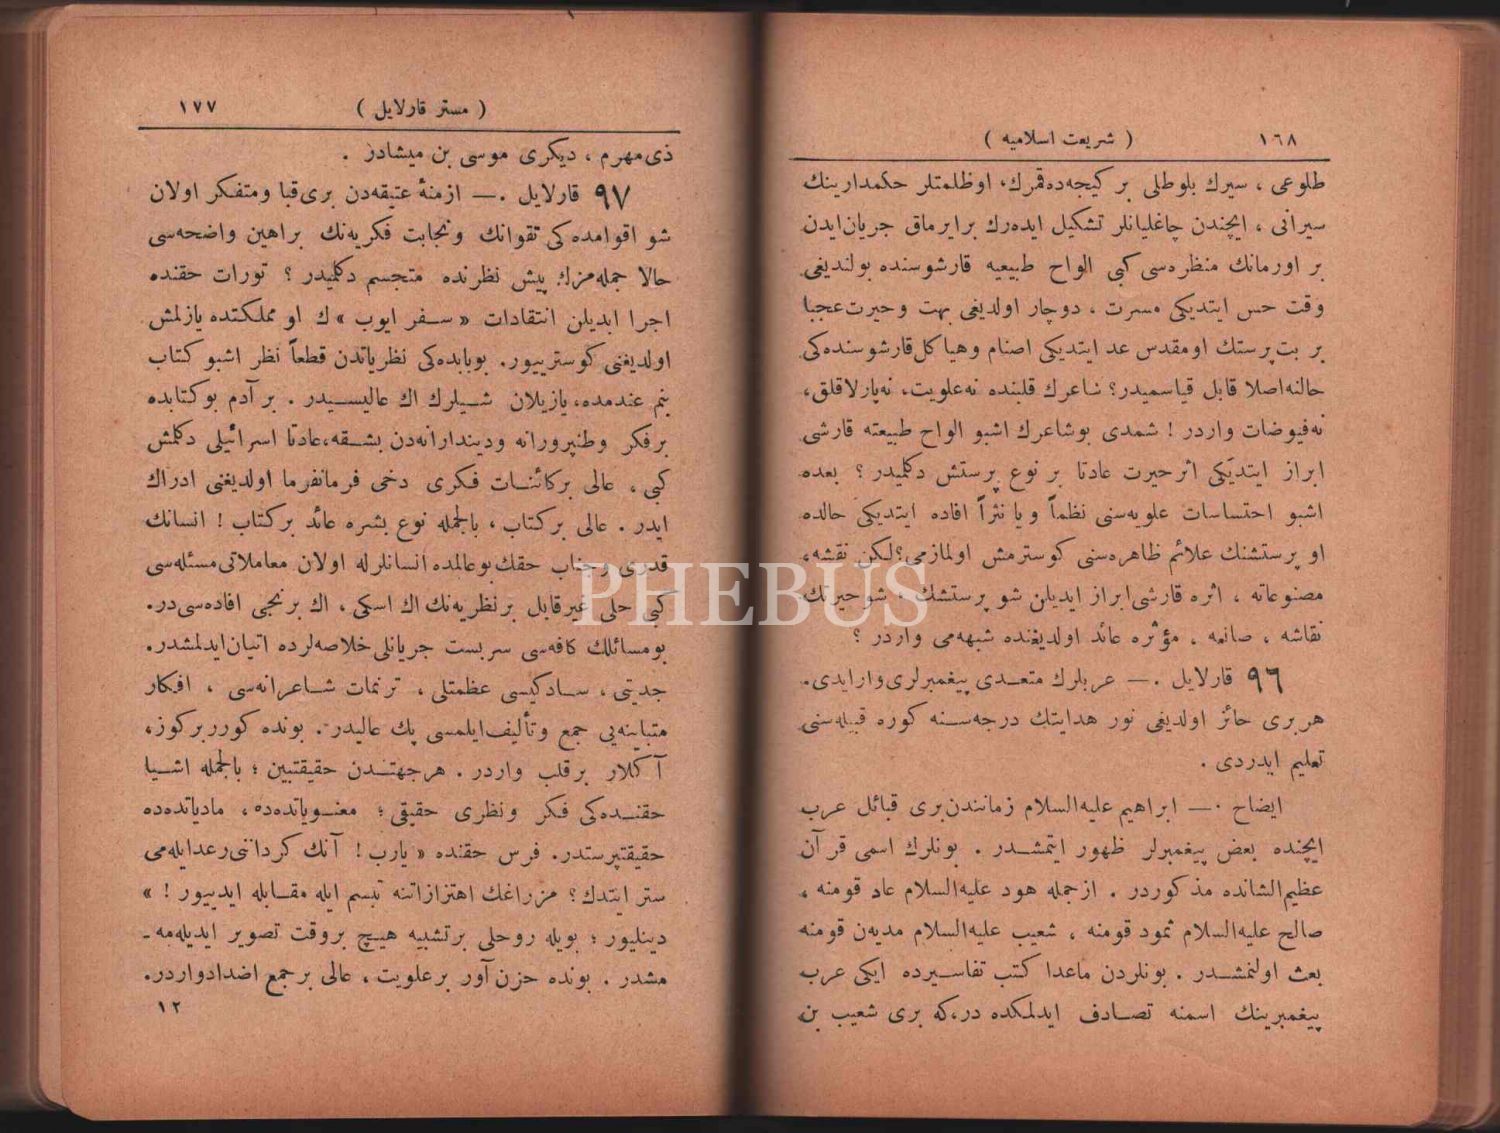 ١٦٨ ( شريعت اسلاميه )
طلوعى ، سيرك بلوطلى بر كيجه‌ده‌قمرك، اوظلمتلر حكمدارينك
سيرانى ، ايچندن چاغليانلر تشكيل ايده‌رك برايرماق جريان‌ايدن
بر اورمانك منظره‌سى كبى الواح طبيعيه قارشوسنده بولنديغى
وقت حس ايتديكى مسرت ، دوچار اولديغى بهت وحيرت‌عجبا
بر بت‌پرستك اومقدس عد ايتديكى اصنام وهياكل‌قارشوسنده‌كى
حالنه‌اصلا قابل قياسميدر؟ شاعرك قلبنده نه‌علويت، نه‌پارلاقلق،
نه‌فيوضات واردر ! شمدى بوشاعرك اشبو الواح طبيعته قارشى
ابراز ايتديكى اثرحيرت عادتا بر نوع پرستش دكلميدر ؟ بعده
اشبو احتساسات علويه‌سنى نظماً ويا نثراً افاده ايتديكى حالده
او پرستشنك علائم ظاهره‌سنى كوسترمش اولمازمى؟لكن نقشه،
مصنوعاته ، اثره قارشى‌ابراز ايديلن شو پرستشك ، شوحيرتك
نقاشه ، صانعه ، مؤثره عائد اولديغنده شبهه‌مى واردر ؟
٩٦ قارلايل .— عربلرك متعدى پيغمبرلرى‌وارايدى.
هربرى حائز اولديغى نور هدايتك درجه‌سنه كوره قبيله‌سنى
تعليم ايدردى .
ايضاح .— ابراهيم عليه‌السلام زمانندن‌برى قبائل عرب
ايچنده بعض پيغمبرلر ظهور ايتمشدر . بونلرك اسمى قرآن
عظيم‌الشانده مذكوردر . ازجمله هود عليه‌السلام عاد قومنه ،
صالح عليه‌السلام ثمود قومنه ، شعيب عليه‌السلام مدين قومنه
بعث اولنمشدر . بونلردن ماعدا كتب تفاسيرده ايكى عرب
پيغمبرينك اسمنه تصادف ايدلمكده در،كه برى شعيب بن
( مستر قارلايل ) ١٧٧
ذى‌مهرم ، ديكرى موسى بن ميشادر .
٩٧ قارلايل .— ازمنۀ عتيقه‌دن برى‌قبا ومتفكر اولان
شو اقوامده‌كى تقوانك ونجابت فكريه‌نك براهين واضحه‌سى
حالا جمله‌مزك پيش نظرنده متجسم دكلميدر ؟ تورات حقنده
اجرا ايديلن انتقادات « سفر ايوب »ك او مملكتده يازلمش
اولديغنى كوسترييور. بوبابده‌كى نظرياتدن قطعاً نظر اشبو كتاب
بنم عندمده، يازيلان شيلرك اك عاليسيدر . بر آدم بوكتابده
برفكر وطنپرورانه وديندارانه‌دن بشقه،عادتا اسرائيلى دكلمش
كبى ، عالى بركائنات فكرى دخى فرمانفرما اولديغنى ادراك
ايدر . عالى بركتاب ، بالجمله نوع بشره عائد بركتاب ! انسانك
قدرى وجناب حقك بوعالمده انسانلرله اولان معاملاتى‌مسئله‌سى
كبى حلى غيرقابل برنظريه‌نك اك اسكى ، اك برنجى افاده‌سى‌در.
بومسائلك كافه‌سى سربست جريانلى خلاصه‌لرده اتيان‌ايدلمشدر.
جديتى ، سادكيسى عظمتلى ، ترنمات شاعرانه‌سى ، افكار
متباينه‌يى جمع وتأليف‌ايلمسى پك عاليدر. بونده كورر بركوز،
آكلار برقلب واردر . هرجهتدن حقيقتبين ؛ بالجمله اشيا
حقنده‌كى فكر ونظرى حقيقى ؛ معنوياتده‌ده ، مادياتده‌ده
حقيقتپرستدر. فرس حقنده « يارب ! آنك كردانى‌رعدايله‌مى
ستر ايتدك؟ مزراغك اهتزازاتنه تبسم ايله مقابله ايدييور ! »
دينليور ؛ بويله روحلى برتشبيه هيچ بروقت تصوير ايديله‌مه ـ
مشدر . بونده حزن آور برعلويت ، عالى برجمع اضدادواردر.
١٢
PHEBUS